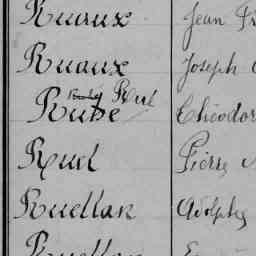 Ruaux Jean
Ruaux Joseph
Rube Ruel Théodor
Ruel Pierre
Ruellan Adolphe
Ruellan